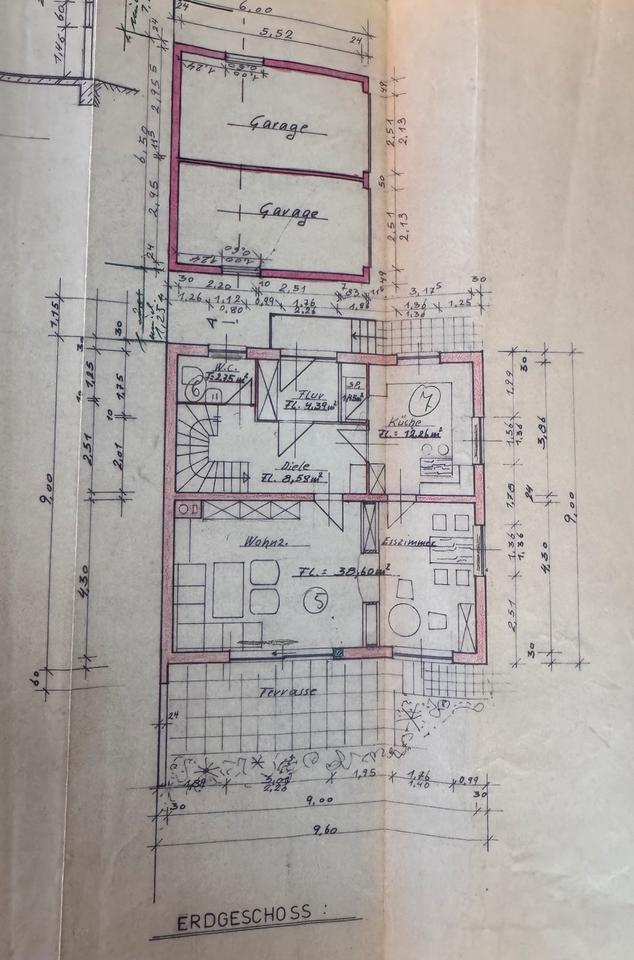 6,00
5,52
24
24
1,00
Garage
2,95
6,50
49
2,51
2,13
50
Garage
2,95
2,51
2,13
24
49
30
2,20
10
2,51
3,17⁵
30
1,26
1,12
0,80
0,99
1,76
2,26
1,36
1,36
1,25
W.C.
6
Flur
Fl. 4,39m²
SP.
7
Küche
Fl. = 12,26m²
Diele
Fl. 8,58m²
1,25
1,75
2,51
2,01
9,00
4,30
60
1,99
30
1,36
1,36
3,86
1,78
24
9,00
1,36
1,36
4,30
2,51
30
Wohnz.
Esszimmer
Fl. = 38,60m²
5
Terrasse
24
1,95
1,76
1,40
0,99
2,26
30
9,00
30
9,60
ERDGESCHOSS :